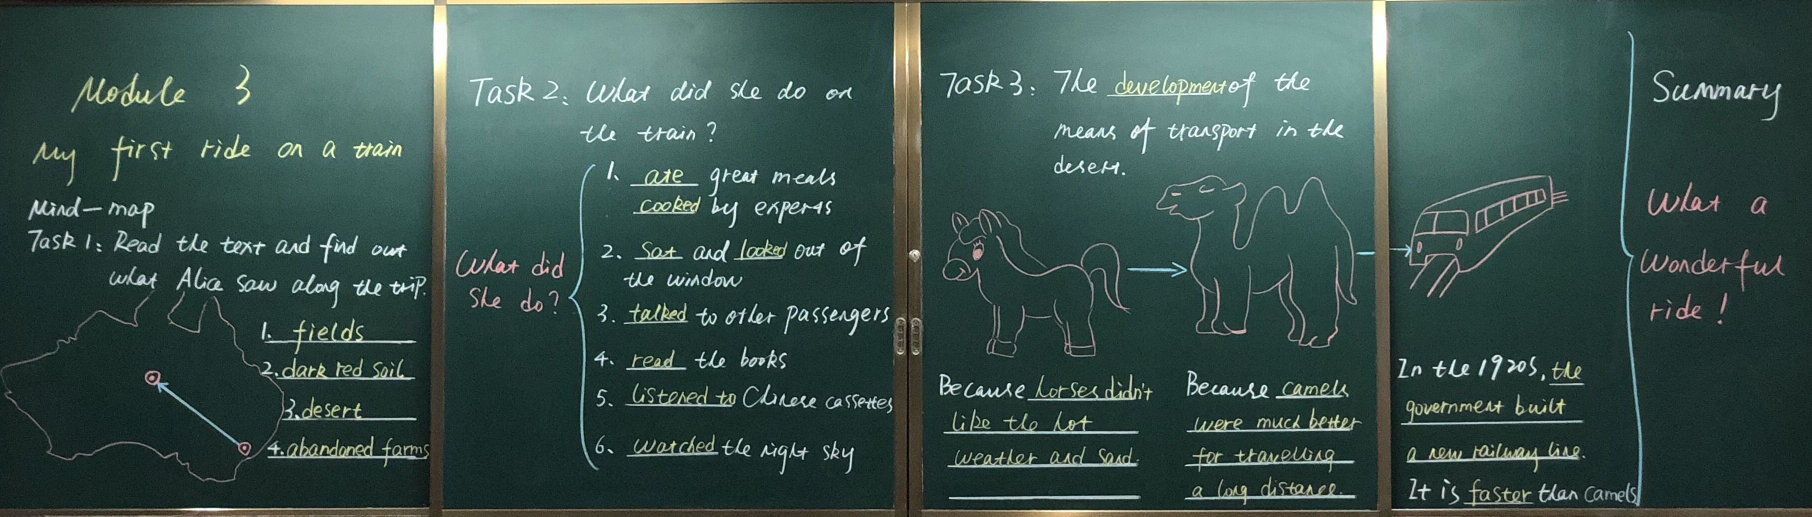 Module 3
My first ride on a train
Mind-map
Task 1: Read the text and find out
what Alice saw along the trip.
1. fields
2. dark red soil
3. desert
4. abandoned farms
Task 2: What did she do on
the train?
What did
she do?
1. ate great meals
cooked by experts
2. sat and looked out of
the window
3. talked to other passengers
4. read the books
5. listened to Chinese cassettes
6. watched the night sky
Task 3: The development of the
means of transport in the
desert.
Because horses didn't
like the hot
weather and sand.
Because camels
were much better
for travelling
a long distance.
In the 1920s, the
government built
a new railway line.
It is faster than camels
Summary
What a
wonderful
ride!